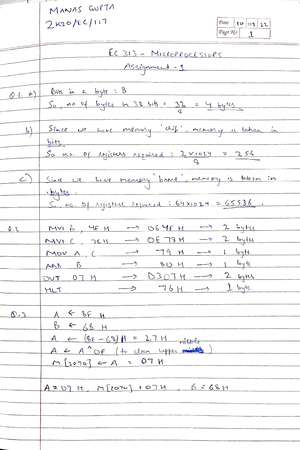 MANAS GUPTA
2K20/EC/117
Date 20 09 22
Page No. 1
EC 313 - MICROPROCESSORS
Assignment - 1
Q.1. a) Bits in a byte : 8
So, no of bytes in 32 bits = 32/8 = 4 bytes.
b) Since we have memory 'chip', memory is taken in
bits.
So no. of registers required : 2×1024/8 = 256
c) Since we have memory 'board', memory is taken in
bytes.
So no. of registers required : 64×1024 = 65536.
Q.2 MVI B, 4F H → 06 4F H → 2 bytes
MVI C, 78 H → 0E 78 H → 2 bytes
MOV A, C → 79 H → 1 byte
ADD B → 80 H → 1 byte
OUT 07 H → D3 07 H → 2 bytes
HLT → 76 H → 1 byte
Q.3 A ← 8F H
B ← 68 H
A ← (8F - 68) H = 27 H
nibble
A ← A ^ 0F (to clean upper )
M [2070] ← A = 07 H
A = 07 H, M[2070] = 07 H, B = 68 H